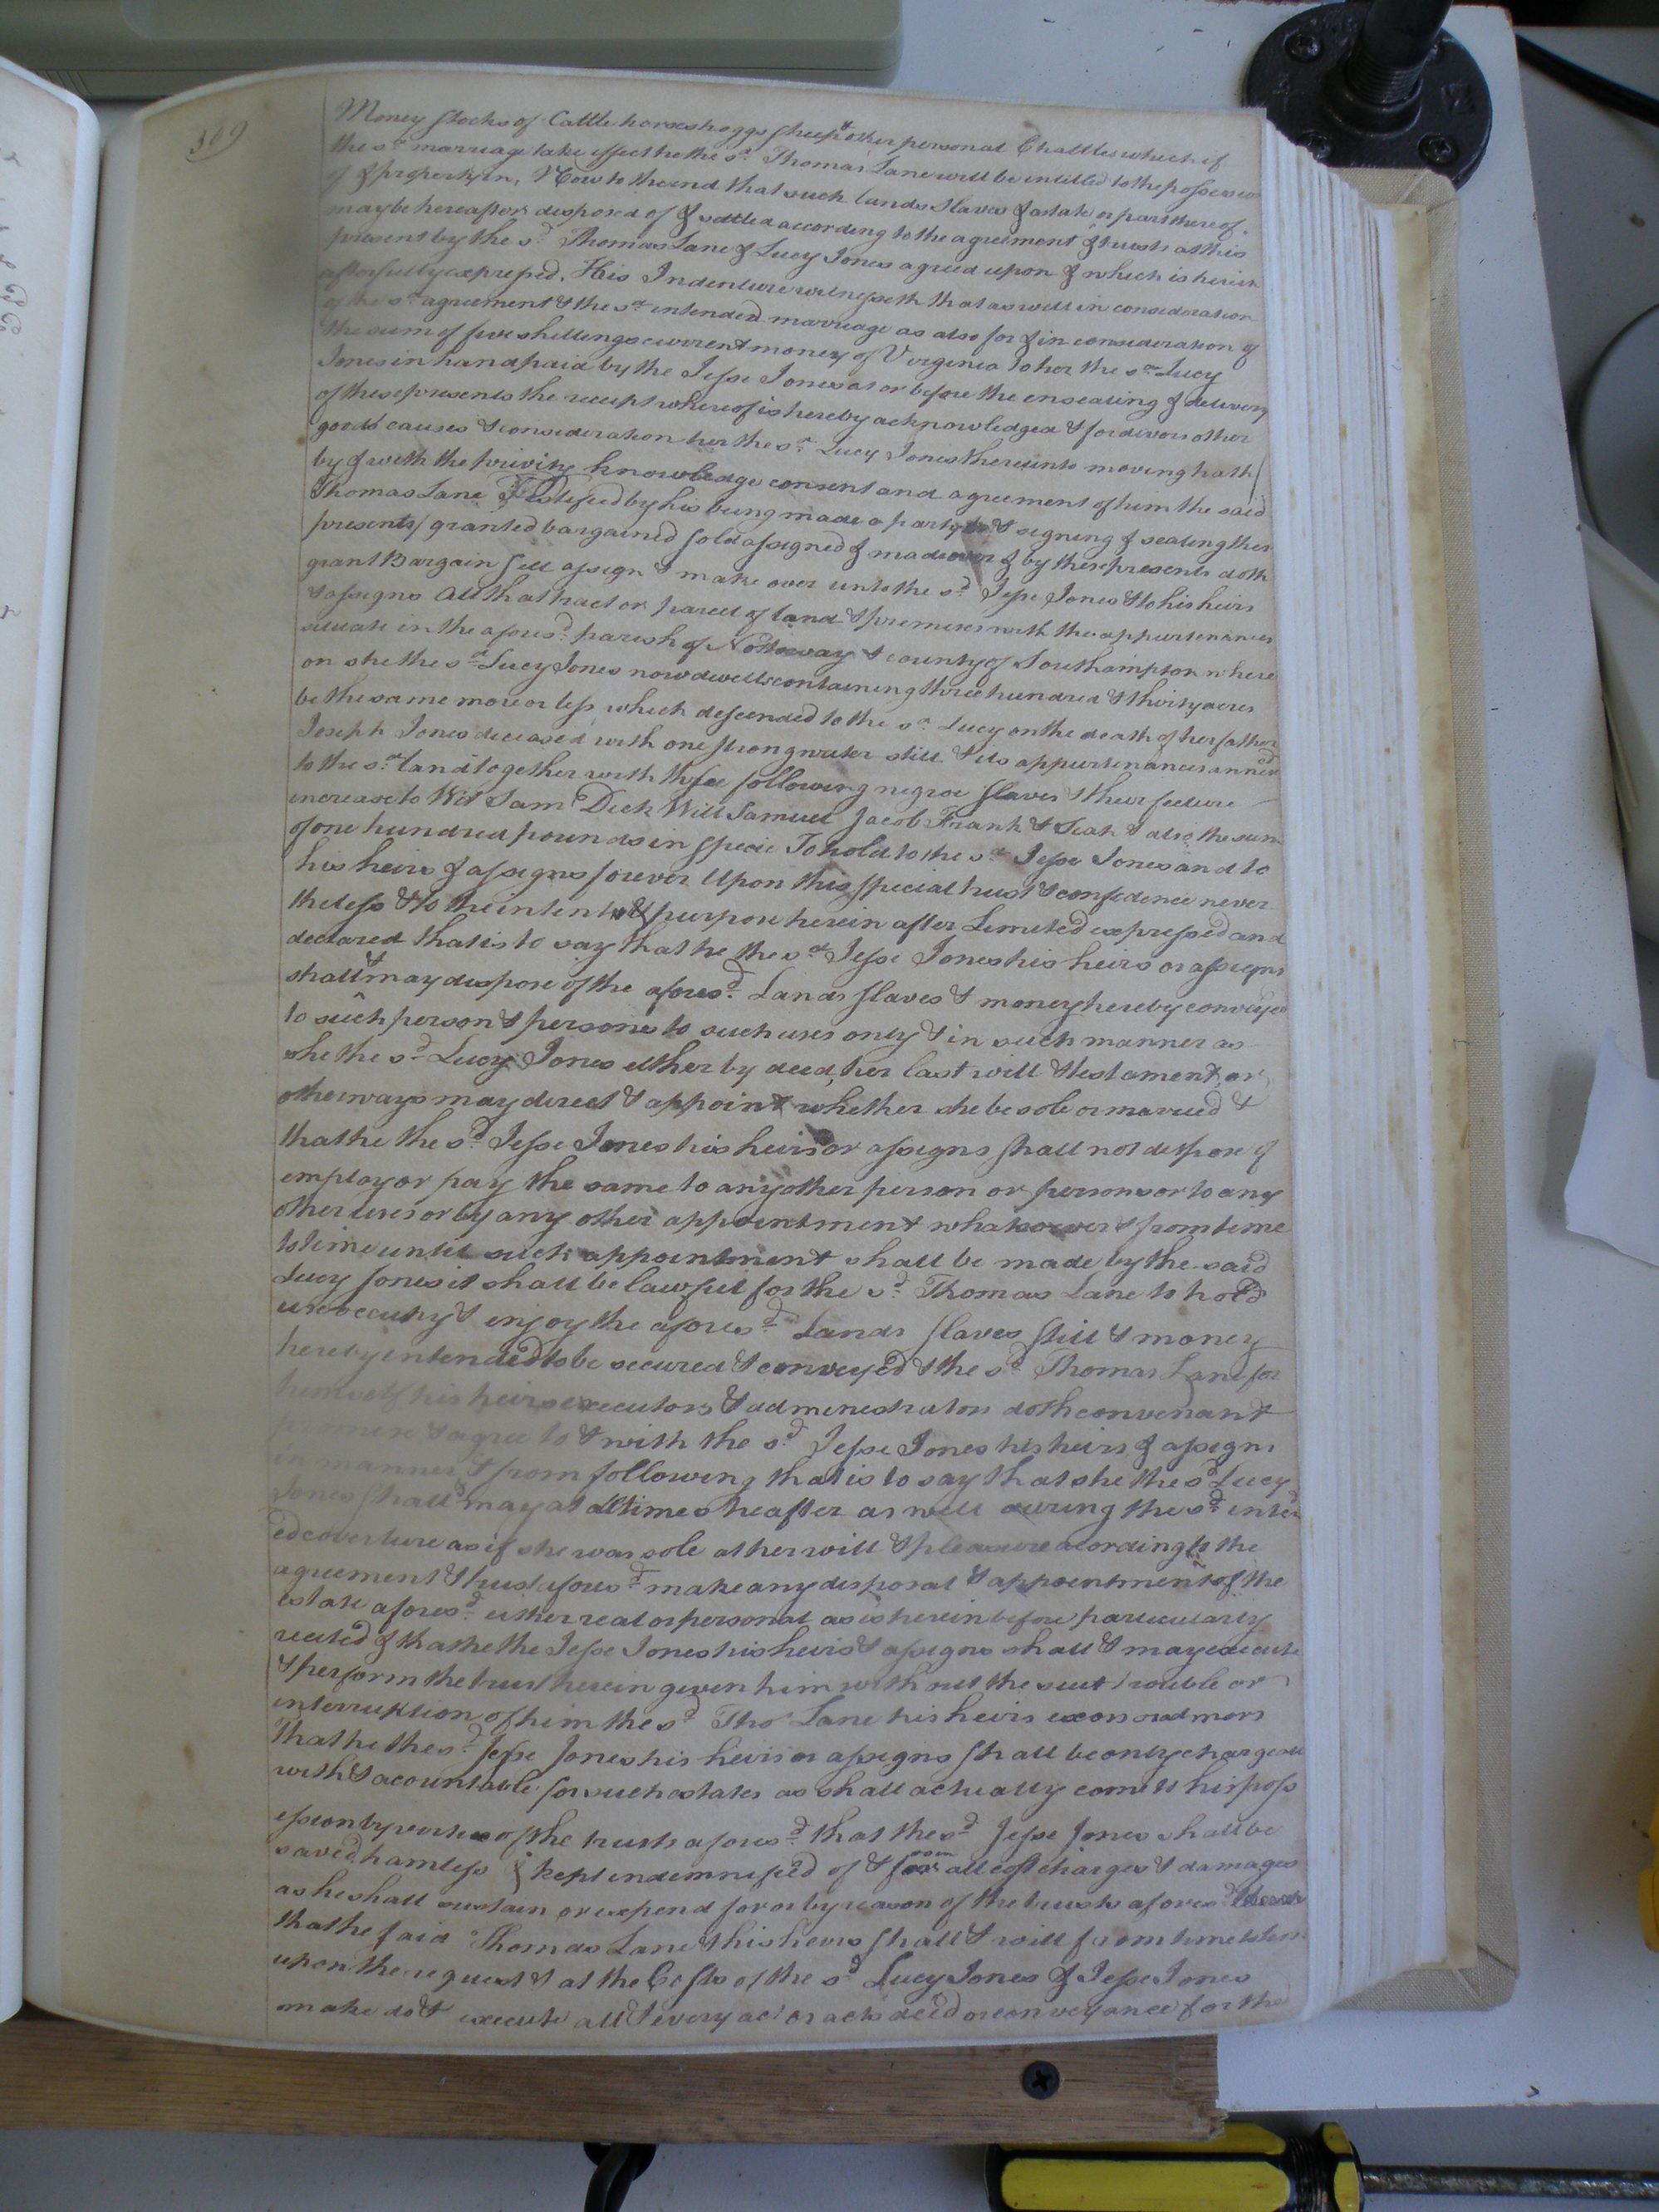 369
Money stocks of Cattle horses hoggs sheep & other personal Chattles which if
the sd. marriage take effect he the sd. Thomas Lane will be intitled to the possession
of & property in. Now to the end that such lands Slaves & estate or part thereof
may be hereafter disposed of & settled according to the agreement & trusts at this
present by the sd. Thomas Lane & Lucy Jones agreed upon & which is herein
after fully expressed. His Indenture witnesseth that as well in consideration
of the sd. agreement & the sd. intended marriage as also for & in consideration of
the sum of five shillings current money of Virginia to her the sd. Lucy
Jones in hand paid by the Jesse Jones at or before the ensealing & delivery
of these presents the receipt whereof is hereby acknowledged & for divers other
good causes & consideration her the sd. Lucy Jones thereunto moving hath
by & with the privity knowledge consent and agreement of him the said
Thomas Lane Testifeed by his being made a party to & signing & sealing these
presents/ granted bargained sold assigned & made over & by these presents doth
grant Bargain sell assign & make over unto the sd. Jesse Jones & to his heirs
& assigns all that tract or parcel of land & premises with the appurtenances
situate in the aforesd. parish of Nottoway & county of Southampton where
on she the sd. Lucy Jones now dwells containing three hundred & thirty acres
be the same more or less which descended to the sd. Lucy on the death of her father
Joseph Jones deceased with one strong water still & its appurtenances annexd
to the sd. land together with these following negroe slaves & their feuture
increase to Wit Sam Dick Will Samuel Jacob Frank & Leah & also the sum
of one hundred pounds in specie To hold to the sd. Jesse Jones and to
his heirs & assigns forever Upon this special trust & confidence never
theless & to the intent & purpose herein after Limited expressed and
declared that is to say that he the sd. Jesse Jones his heirs or assigns
shall & may dispose of the aforesd. Lands slaves & money hereby conveyed
to such person & persons to such uses only & in such manner as
she the sd. Lucy Jones either by deed, her last will & testament or
otherways may direct & appoint whether she be sole or married &
that he the sd. Jesse Jones his heirs or assigns shall not dispose of
employ or pay the same to any other person or persons or to any
other uses or by any other appointment whatsoever & from time
to time until such appointment shall be made by the said
Lucy Jones it shall be lawful for the sd. Thomas Lane to hold
use occupy & enjoy the aforesd. Lands slaves still & money
hereby intended to be secured & conveyed & the sd. Thomas Lane for
himself his heirs executors & administrators doth convenant
promise & agree to & with the sd. Jesse Jones his heirs & assigns
in manner & from following that is to say that she the sd. Lucy
Jones shall & may at all times heafter as well during the sd. intend
ed coverture as if she was sole at her will & pleasure acording to the
agreement & trust aforesd. make any disposal & appointment of the
estate aforesd. either real or personal as is herein before particularly
recited & that he the Jesse Jones his heirs & assigns shall & may execute
& perform the trust herein given him without the suit trouble or
interruktion of him the sd. Tho Lane his heirs exors or admors
That he the sd. Jesse Jones his heirs or assigns shall be only chargeable
with & acountable for such estates as shall actually come to his poss
ession by vertue of the trusts aforesd. that the sd. Jesse Jones shall be
saved hamless & kept indemnified of & from all cost charges & damages
as he shall sustain or expend for or by reason of the trusts aforesd.
that he said Thomas Lane & his heirs shall & will from time to time
upon the request & at the Costs of the sd. Lucy Jones & Jesse Jones
make do & execute all & every act or acts deed or conveyance for the